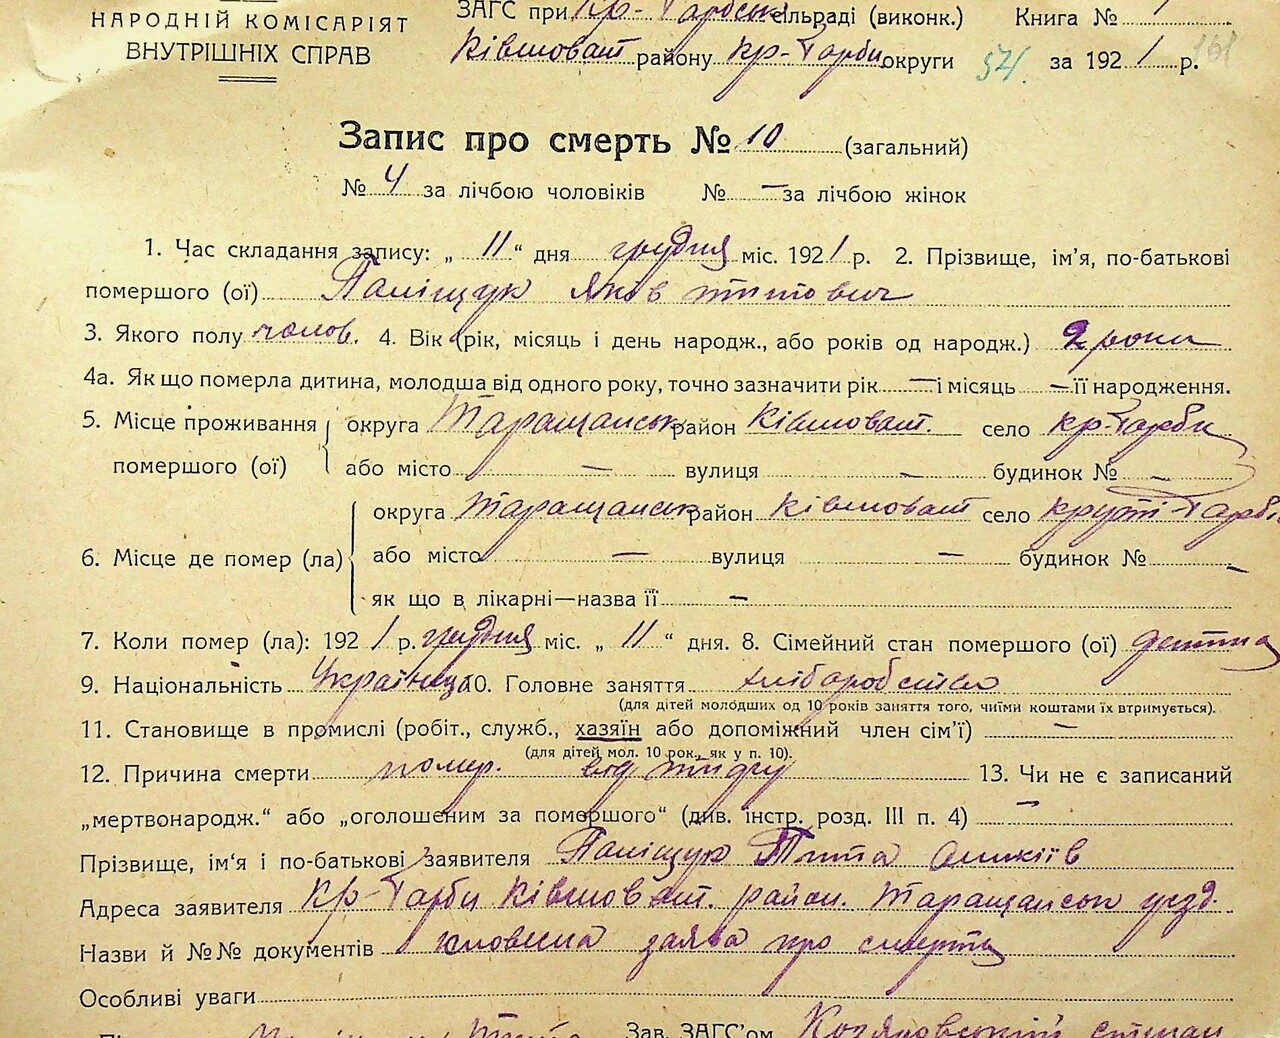 НАРОДНІЙ КОМІСАРІЯТ
ВНУТРІШНІХ СПРАВ
ЗАГС при Кр-Гарбськ сільраді (виконк.) Книга №
Ківшоват району Кр-Гарби округи 521. за 1921 р. 161
Запис про смерть № 10 (загальний)
№ 4 за лічбою чоловіків № — за лічбою жінок
1. Час складання запису: „ 11 “ дня грудня міс. 1921 р. 2. Прізвище, ім'я, по-батькові
помершого (ої) Паліщук Яков титович
3. Якого полу чолов. 4. Вік (рік, місяць і день народж., або років од народж.) 2 роки
4а. Як що померла дитина, молодша від одного року, точно зазначити рік — і місяць — її народження.
5. Місце проживання округа Таращанськ район Ківшоват. село Кр-Гарби
помершого (ої) або місто — вулиця — будинок № —
округа Таращанськ район Ківшоват село Круті-Гарби
6. Місце де помер (ла) або місто — вулиця — будинок № —
як що в лікарні—назва її —
7. Коли помер (ла): 1921 р. грудня міс. „ 11 “ дня. 8. Сімейний стан помершого (ої) детина
9. Національність Українець 10. Головне заняття хліборобство
(для дітей молодших од 10 років заняття того, чиїми коштами їх втримується).
11. Становище в промислі (робіт., служб., хазяїн або допоміжний член сім'ї) —
(для дітей мол. 10 рок., як у п. 10).
12. Причина смерти помер. від тифу 13. Чи не є записаний
„мертвонародж.“ або „оголошеним за помершого“ (див. інстр. розд. III п. 4) —
Прізвище, ім'я і по-батькові заявителя Паліщук Тита
Адреса заявителя Кр-Гарби Ківшоват. район. Таращанськ уезд.
Назви й №№ документів словесна заява про смерть
Особливі уваги
Зав. ЗАГС'ом Козяковський степан